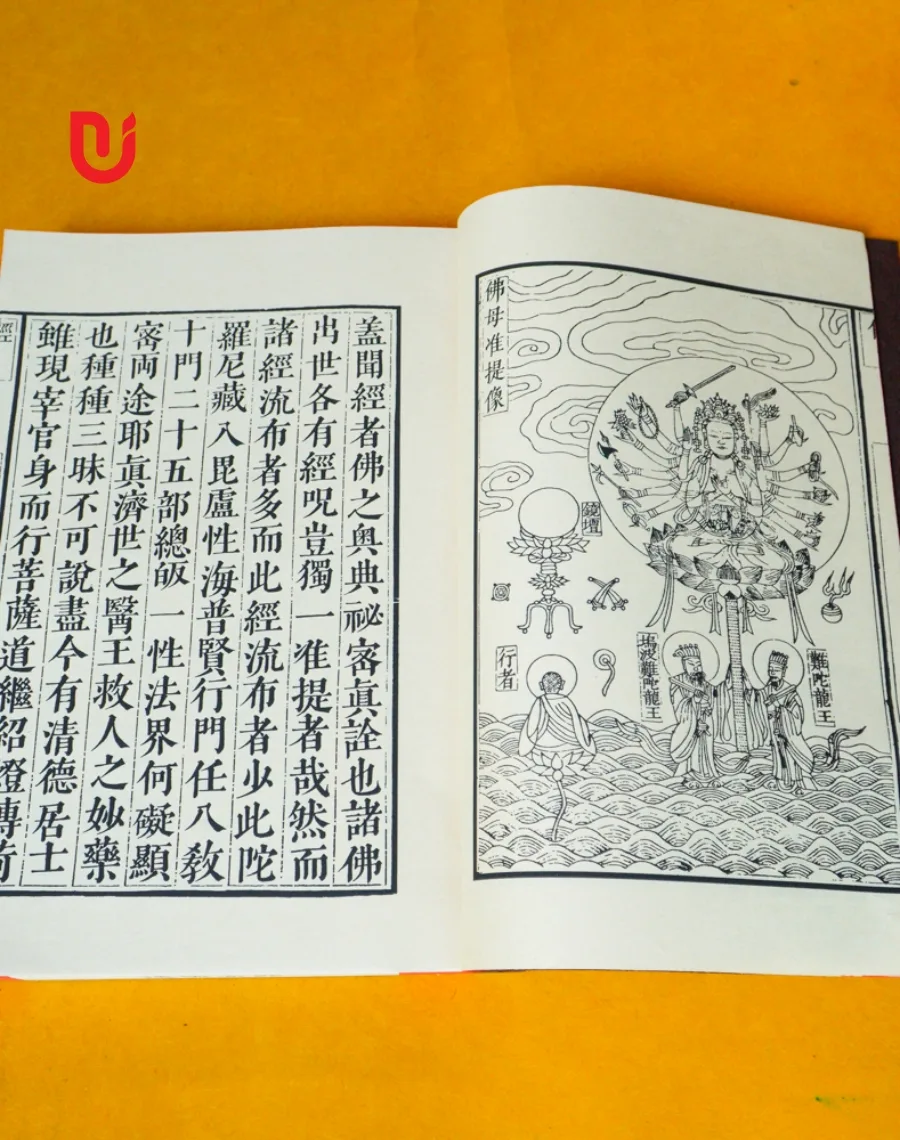 佛母准提像
鏡壇
難陀龍王
塢波難陀龍王
行者
盖聞經者佛之奥典祕宻眞詮也諸佛
出世各有經呪豈獨一准提者哉然而
諸經流布者多而此經流布者少此陀
羅尼藏入毘盧性海普賢行門任八敎
十門二十五部總皈一性法界何礙顯
宻両途耶眞濟世之醫王救人之妙藥
也種種三昧不可說盡今有清德居士
雖現宰官身而行菩薩道繼紹燈傳